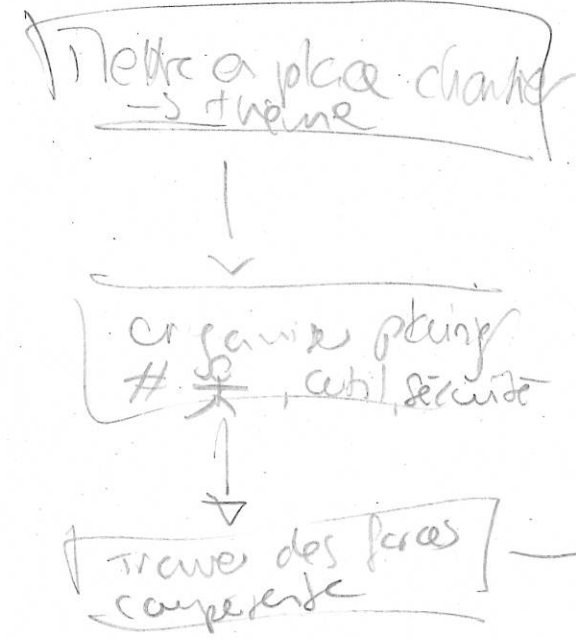 Mettre a place chantier
-> thème
organiser planing
# , outil, sécurité
Trouver des forces
competente